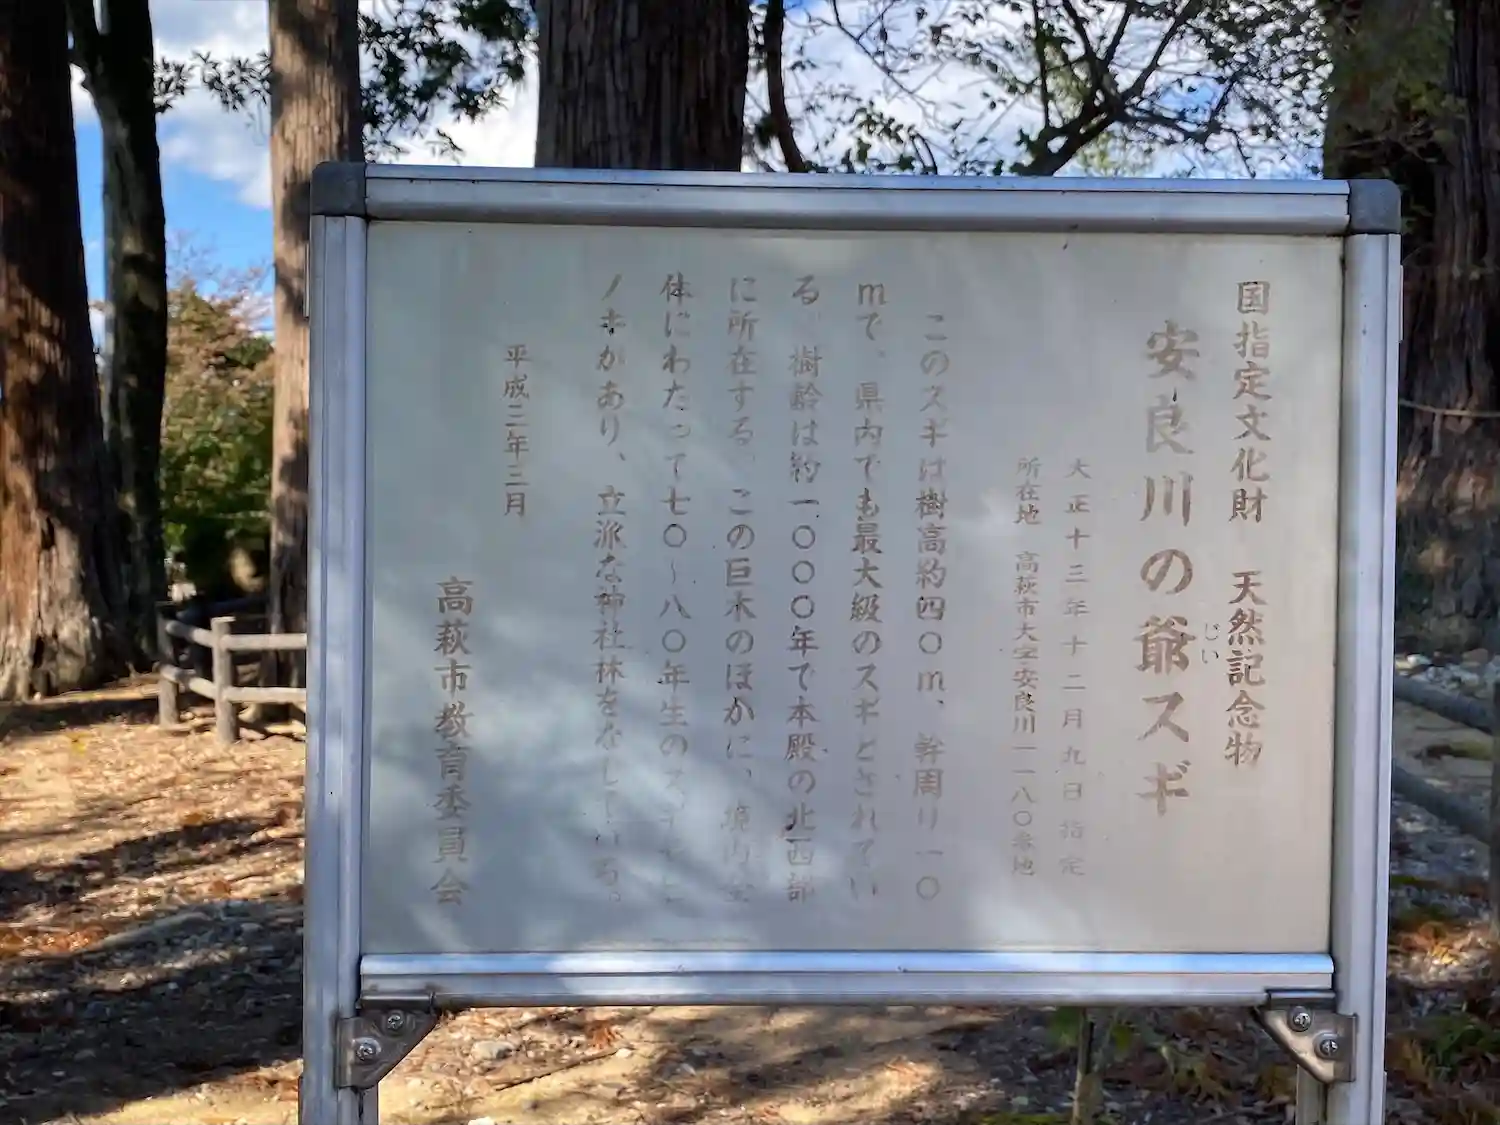 国指定文化財　天然記念物
安良川の爺スギ
じい
大正十三年十二月九日指定
所在地　高萩市大字安良川一一八〇番地
このスギは樹高約四〇m、幹周り一〇
mで、県内でも最大級のスギとされてい
る。樹齢は約一〇〇〇年で本殿の北西部
に所在する。この巨木のほかに、境内全
体にわたって七〇～八〇年生のスギとヒ
ノキがあり、立派な神社林をなしている。
平成三年三月
高萩市教育委員会